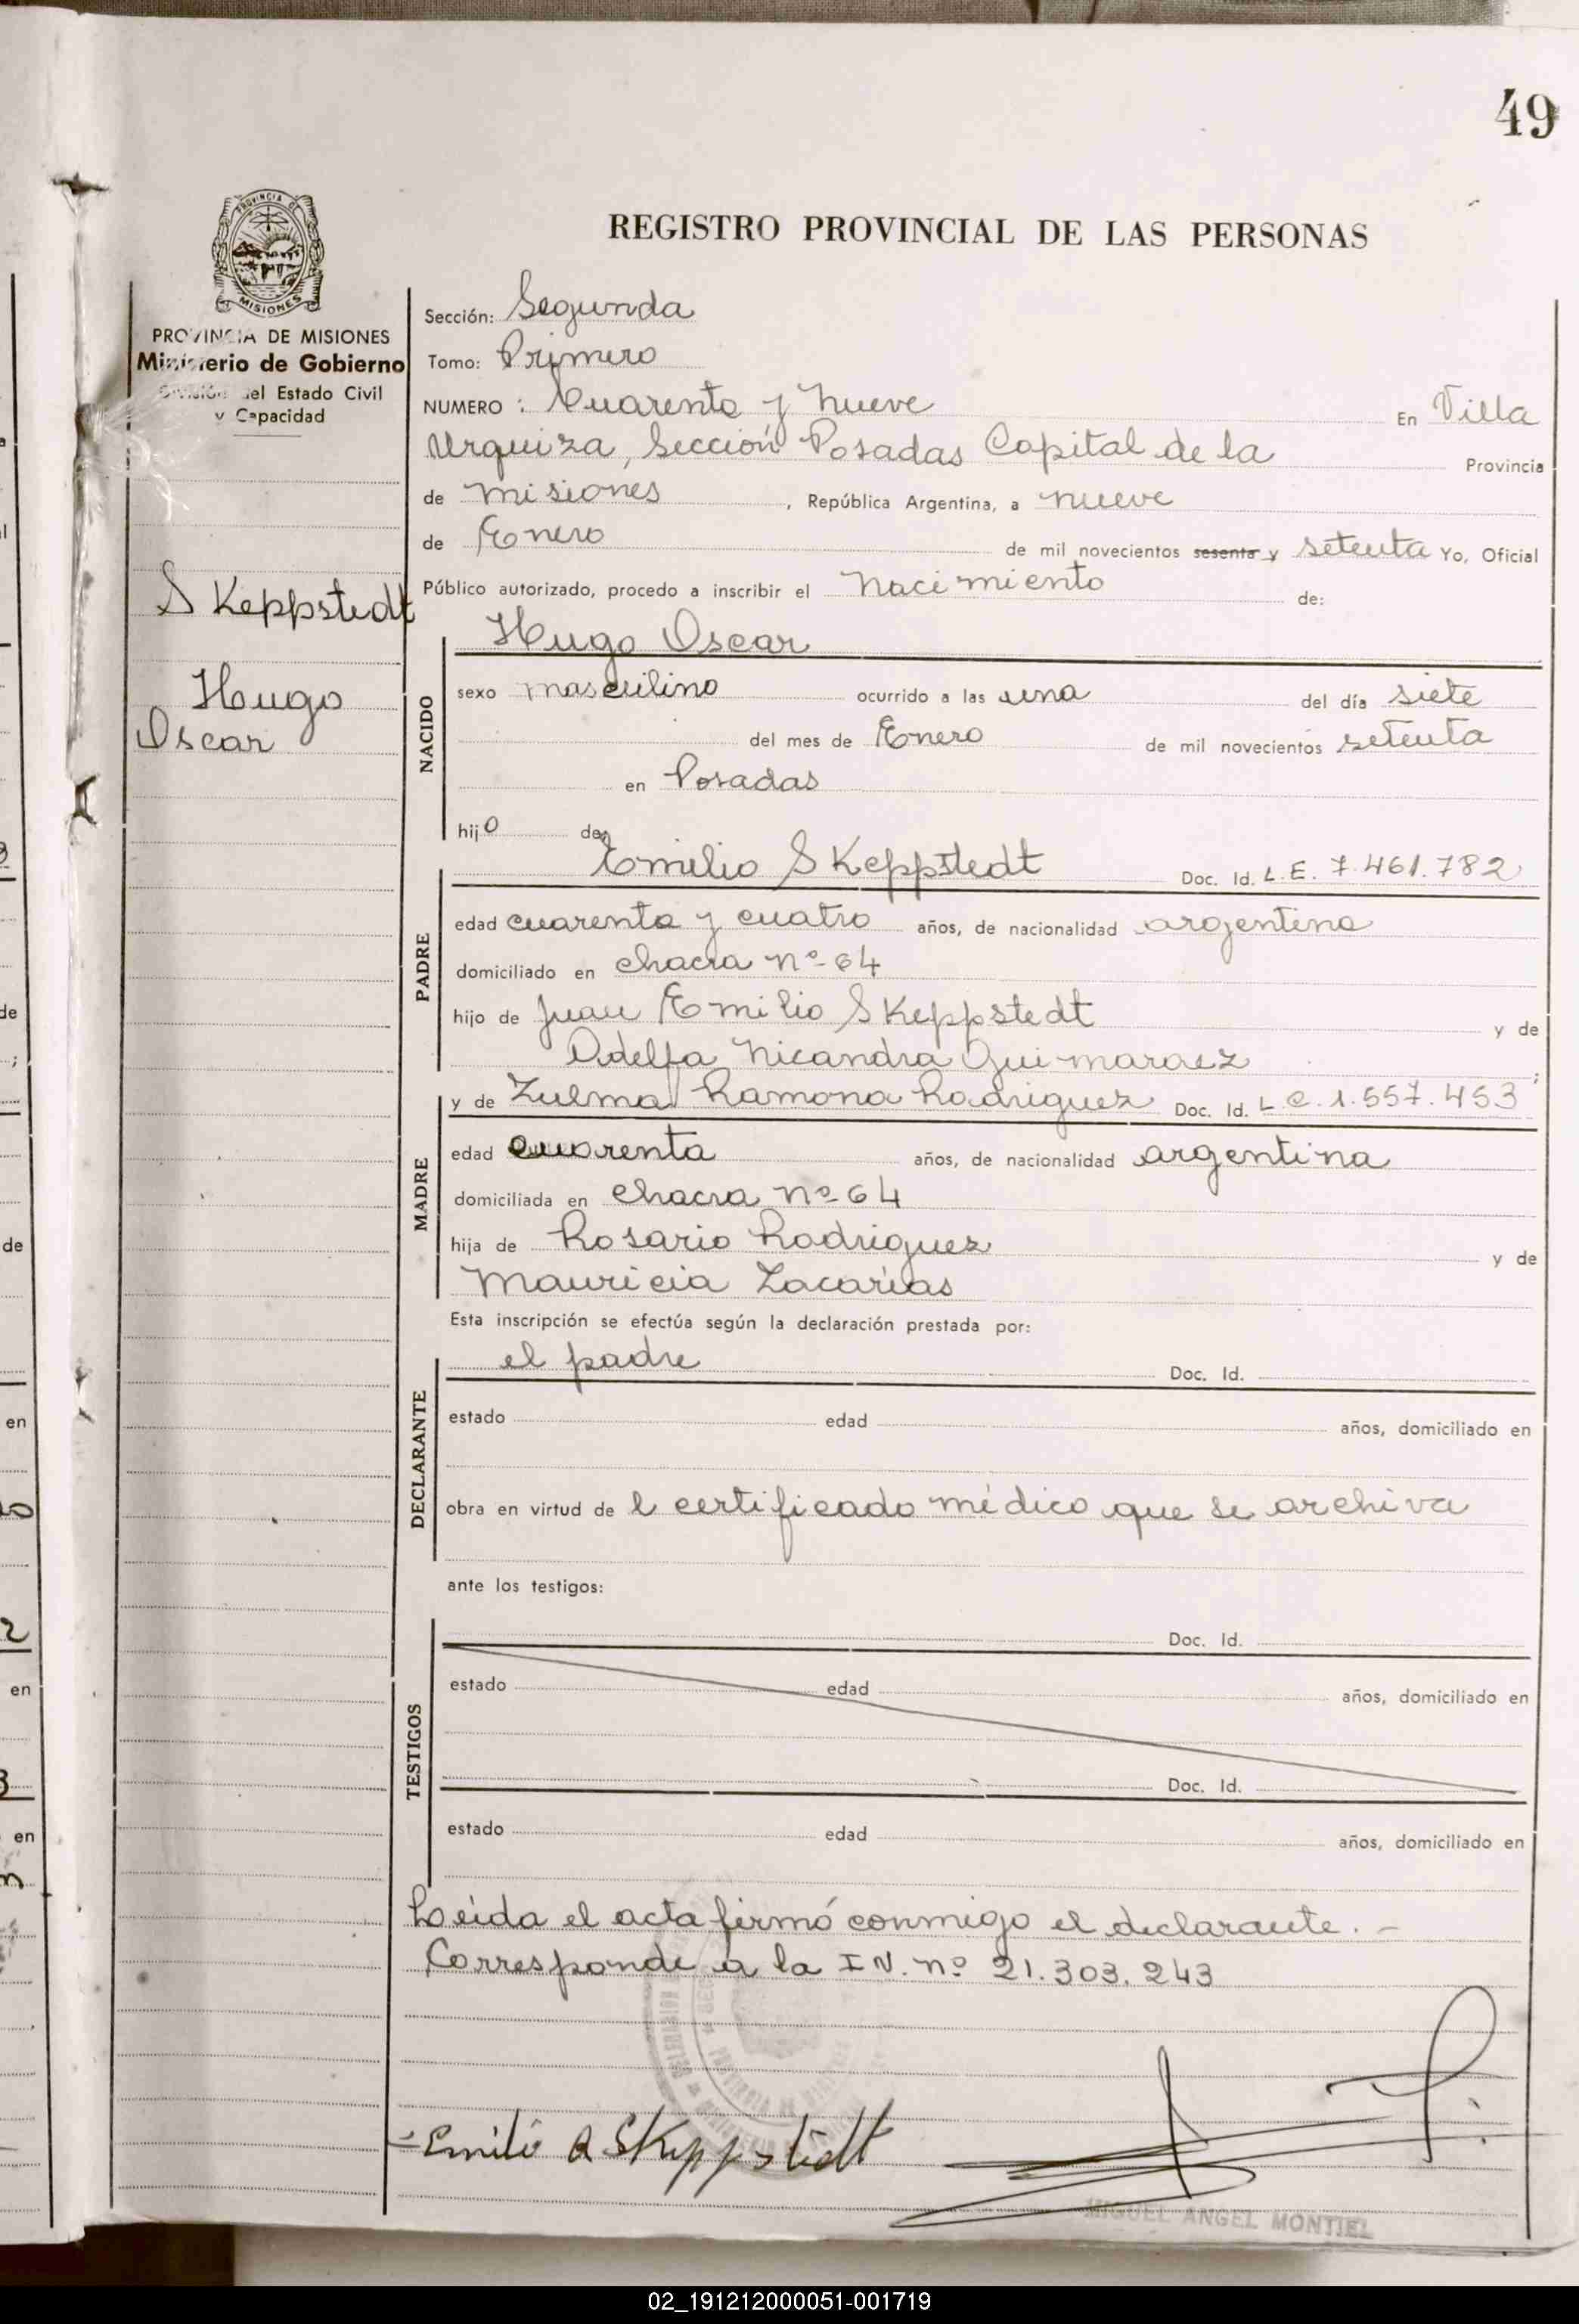 49
PROVINCIA DE MISIONES
PROVINCIA DE MISIONES
Ministerio de Gobierno
División del Estado Civil
y Capacidad
Skeppstedt
Hugo
Oscar
REGISTRO PROVINCIAL DE LAS PERSONAS
Sección: Segunda
Tomo: Primero
NUMERO : Cuarenta y nueve En Villa
Urquiza, Sección Posadas Capital de la Provincia
de Misiones, República Argentina, a nueve
de Enero de mil novecientos sesenta y setenta Yo, Oficial
Público autorizado, procedo a inscribir el nacimiento de:
Hugo Oscar
NACIDO
sexo masculino ocurrido a las una del día siete
del mes de Enero de mil novecientos setenta
en Posadas
hijo de
PADRE
Emilio Skeppstedt Doc. Id. L.E. 7.461.782
edad cuarenta y cuatro años, de nacionalidad argentina
domiciliado en chacra nº 64
hijo de Juan Emilio Skeppstedt y de
Adelfa Nicandra Guimaraez;
MADRE
y de Zulma Ramona Rodriguez Doc. Id. L.C. 1.557.453
edad cuarenta años, de nacionalidad argentina
domiciliada en chacra nº 64
hija de Rosario Rodriguez y de
Mauricia Zacarías
Esta inscripción se efectúa según la declaración prestada por:
DECLARANTE
el padre Doc. Id.
estado edad años, domiciliado en
obra en virtud de l certificado médico que se archiva
ante los testigos:
TESTIGOS
Doc. Id.
estado edad años, domiciliado en
Doc. Id.
estado edad años, domiciliado en
Leída el acta firmó conmigo el declarante.-
Corresponde a la I N. nº 21.303.243
Emilio A Skeppstedt
MIGUEL ANGEL MONTIEL
02_191212000051-001719